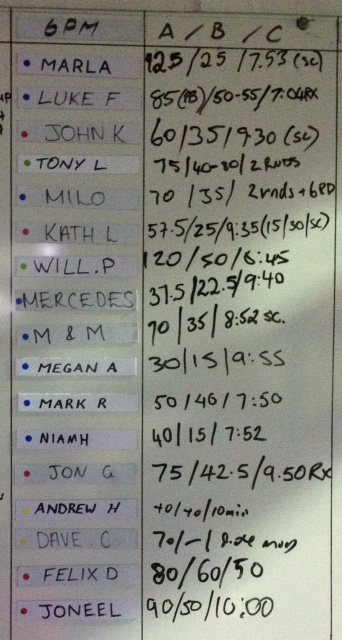 6PM A / B / C
MARLA 42.5 / 25 / 7.53 (sc)
LUKE F 85(PB)/50-55/7:04RX
JOHN K 60/35/9.30 (sc)
TONY L 75/40-30/2 RNDS
MILO 70 / 35 / 2rnds + 6PD
KATH L 57.5/25/9:35(15/30/sc)
WILL.P 120 / 50 / 6:45
MERCEDES 37.5/22.5/9:40
M & M 70 | 35 | 8:52 sc.
MEGAN A 30|15|9:55
MARK R 50/40/7:50
NIAMH 40|15|7:52
JON G 75/42.5/9.50Rx
ANDREW H 40/40/10min
DAVE.C 70/-/
FELIX D 80/60/50
JONEEL 90/50/10:00